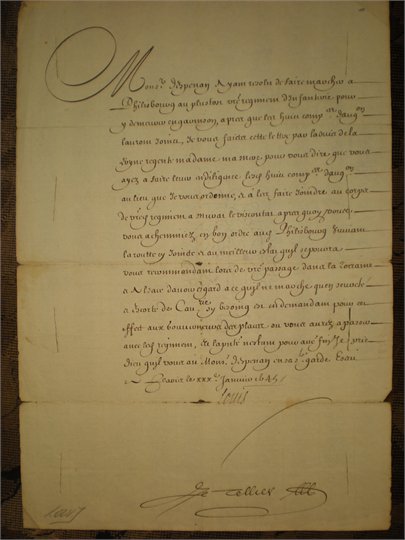 Monsr. despenan Ayant resolu de faire marcher a
Philisbourg au plustost vre regiment dInfanterie pour
y demeurer en garnison, apres que les huict comp.es daug.on
lauront Joinct, Je vous faictz cette lettre par ladvis de la
Reyne regente madame ma mere pour vous dire que vous
ayez a faire lever en diligence lesd huict comp.es daug.on
au lieu que Je vous ordonne, et a les faire Joindre au corps
de vre regiment a apres quoy vous
vous acheminez en bon ordre aud Philisbourg suivant
la routte cy Jointe et au meilleur estat quil se pourra
vous recommandant lors de vre passage dans la Lorraine
et Alsace davoir esgard a ce quil ne marche quen seureté
et escorte de Caurie sy besoing est en demandant pour cet
effect aux gouverneurs des places ou vous aurez a passer
avec led regiment, Et la pnte nestant pour autre fin Je prie
Dieu quil vous ait Monsr. despenan en sa ste garde. Escrit
a Paris le xxxe Janvier 1645
Louis
Le Tellier